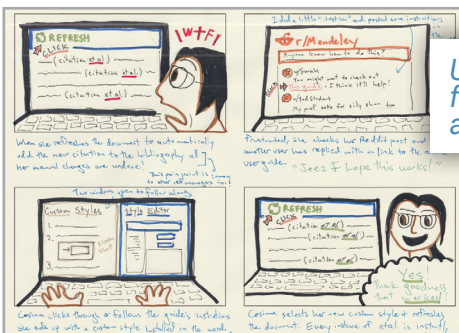 REFRESH
CLICK
! WTF!
(citation et al.)
(citation et al.)
(citation et al.)
When she refreshes the document to automatically
add the new citation to the bibliography all
her manual changes are undone!
This pain point is
to other ref managers too!
I did a little "testing" and posted some instructions
r/Mendeley
Anyone know how to do this?
u/Sarah
You might want to check out
this guide. I think it'll help!
CLICK
My prof asks for silly rules too
Frustrated, she checks her Reddit post and
another user has replied with a link to the
user guide.
"Jeez I hope this works!"
U
f
a
Two windows open to follow along
Custom Styles
1.
2.
3.
Style Editor
Cosima clicks through or follows the guide's instructions
She ends up with a custom style installed in the word
REFRESH
CLICK
(citation et al.)
(citation et al.)
(citation et al.)
Yes!
Thank goodness
that worked!
Cosima selects her new custom style & refreshes
the document. Every instance of et al is instantly